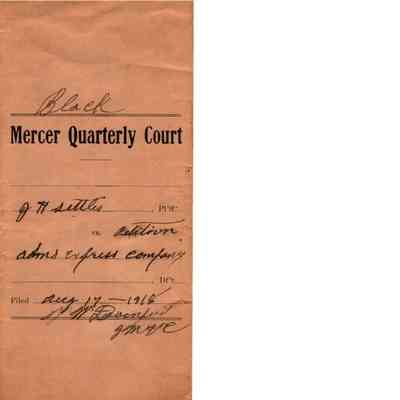 Black
Mercer Quarterly Court
J H Settles Pltf.
vs. Petition
Adms Express Company
Def.
Filed Aug 17 - 1916
J M Q C